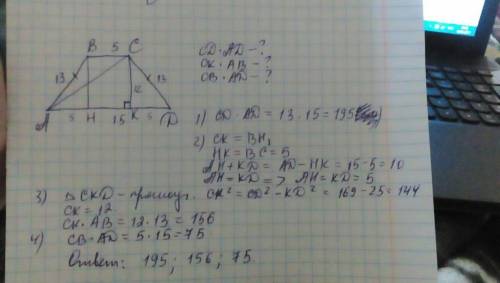 B 5 C
13 13
12
A 5 H 15 K 5 D
CD · AD - ?
CK · AB - ?
CB · AD - ?
1) CD · AD = 13 · 15 = 195
2) CK = BH,
HK = BC = 5
AH + KD = AD - HK = 15 - 5 = 10
AH = KD => AH = KD = 5
3) △CKD - прямоуг. CK² = CD² - KD² = 169 - 25 = 144
CK = 12
CK · AB = 12 · 13 = 156
4) CB · AD = 5 · 15 = 75
Ответ: 195; 156; 75.